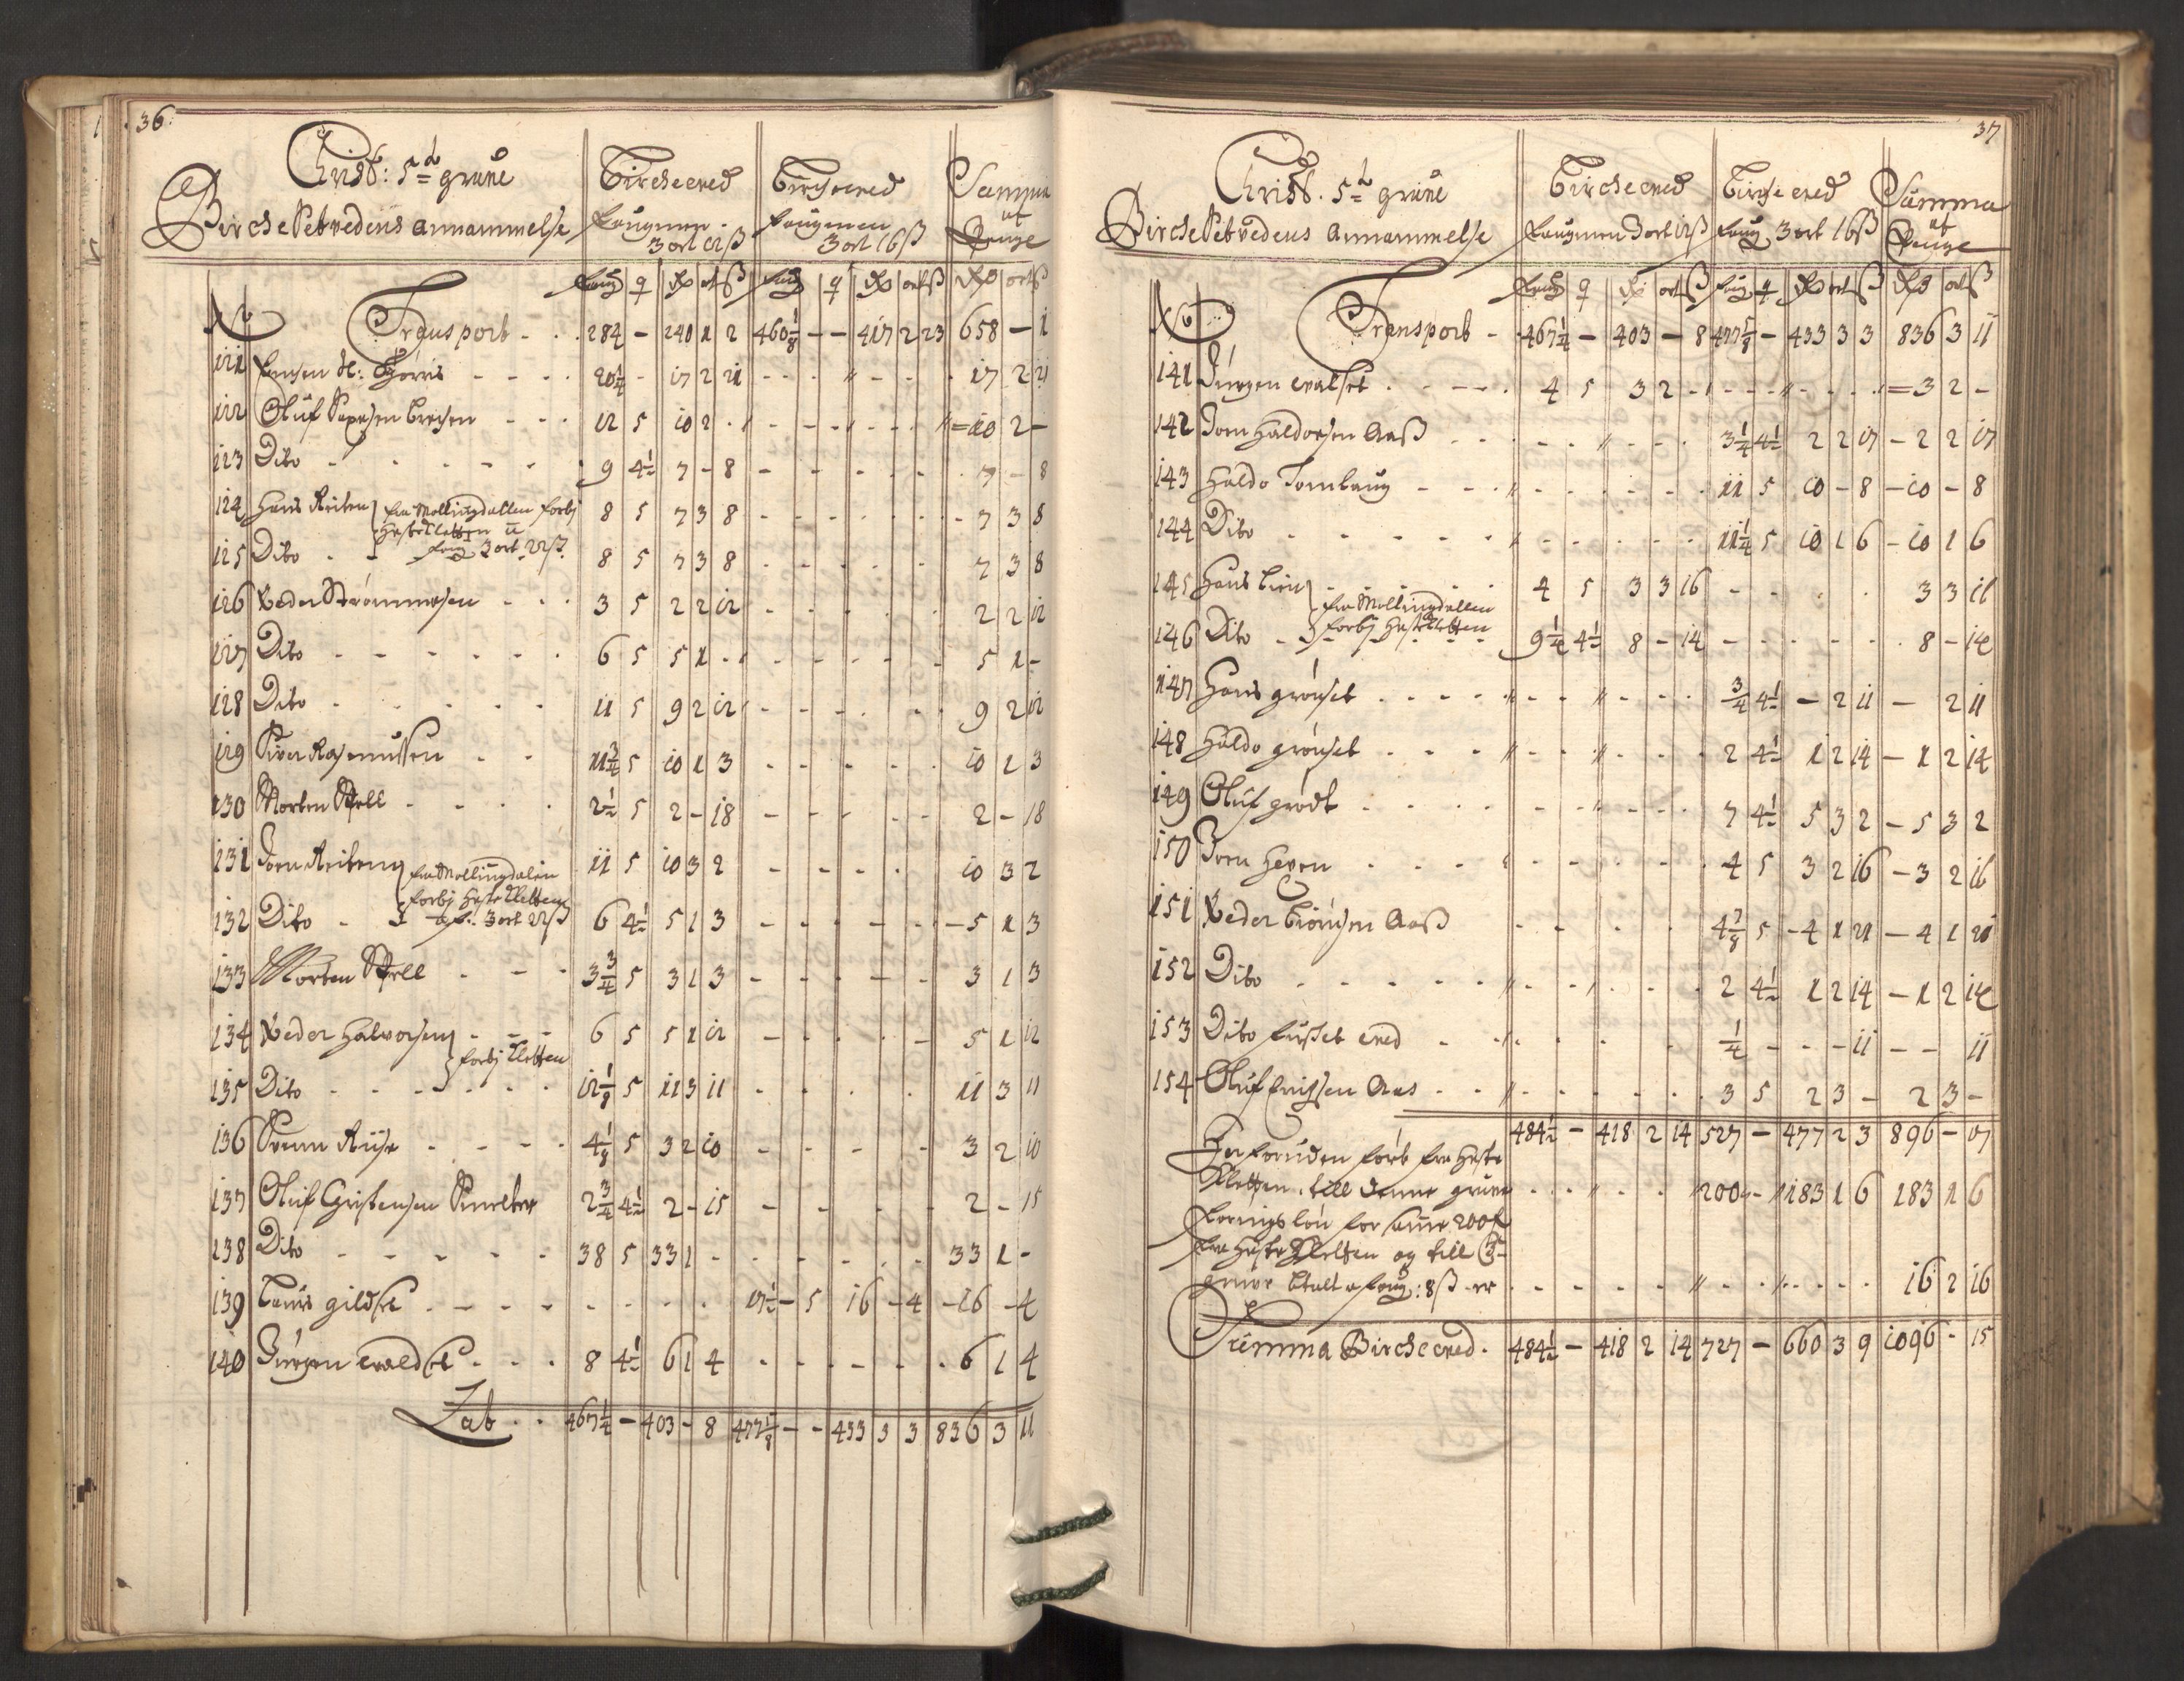 36:
Christ: 5te grube
Birche Setvedens annammelse
Birche ved
Faugnen 3 ort 12 ß
Birche ved
Faugnen 3 ort 16 ß
Summa
af
Penge
Faug q Rd ort ß Faug q Rd ort ß Rd ort ß
No Transport - - 284 - 240 1 2 460 1/8 - - 417 2 23 658 - 1
121 20 1/4 - 17 2 21 - - - 17 2 21
122 Oluf 12 5 10 2 - - - - - 10 2 -
123 Dito - - - 9 4 1/2 7 - 8 - - - 7 - 8
124 Hans Reiten fra Mollingdallen forbj 8 5 7 3 8 - - - 7 3 8
Hestekletten
125 Dito - - Faug 3 ort 22 ß 8 5 7 3 8 - - - 7 3 8
126 Peder 3 5 2 2 12 - - - 2 2 12
127 Dito - - - 6 5 5 1 - - - - 5 1 -
128 Dito - - - 11 5 9 2 12 - - - 9 2 12
129 Siver Rasmussen - - 11 3/4 5 10 1 3 - - - 10 1 3
130 Morten Stell - - - 2 1/2 5 2 - 18 - - - 2 - 18
131 Jon Reiten fra Mollingdalen 11 5 10 3 2 - - - 10 3 2
forbj Hestekletten
132 Dito - - 3 ort 22 ß 6 4 1/2 5 1 3 - - - 5 1 3
133 Morten Stell - - - 3 3/4 5 3 1 3 - - - 3 1 3
134 Peder Halvorsen - - - 6 5 5 1 12 - - - 5 1 12
forbj Kletten
135 Dito - - - 12 1/8 5 11 3 11 - - - 11 3 11
136 Svenn Riise - - - 4 1/8 5 3 2 10 - - - 3 2 10
137 Oluf Christensen Smelter 2 3/4 4 1/2 2 - 15 - - - 2 - 15
138 Dito - - - 38 5 33 1 - - - - 33 1 -
139 Lauris Gildset - - - - 17 1/2 - 5 16 - 4 - 16 - 4
140 Jürgen Evaldset - - - 8 4 1/2 6 1 4 - - - 6 1 4
Lat - - 467 1/4 - 403 - 8 477 5/8 - - 433 3 3 836 3 11
37
Christ. 5te grube
Birche Setvedens annammelse
Birche ved
Faugnen 3 ort 12 ß
Birche ved
Faug 3 ort 16 ß
Summa
af
Penge
Faug q Rd ort ß Faug q Rd ort ß Rd ort ß
No Transport - 467 1/4 - 403 - 8 477 5/8 - 433 3 3 836 3 11
141 Jürgen Evalset - - - 4 5 3 2 - - - - 3 2 -
142 Jonn Haldorsen Aaß - - - 3 1/4 4 1/2 2 2 17 - 2 2 17
143 Haldo Tomlaug - - - 11 5 10 - 8 - 10 - 8
144 Dito - - - 11 1/4 5 10 1 6 - 10 1 6
145 Hans Lien - 4 5 3 3 16 - - - 3 3 16
fra Mollingdallen
146 Dito - - forbj Hestekletten 9 1/4 4 1/2 8 - 14 - - - 8 - 14
147 Hans Grønset - - - 3/4 4 1/2 - 2 11 - 2 11
148 Haldo Grønset - - - 2 4 1/2 1 2 14 - 1 2 14
149 Oluf Grodt - - - 7 4 1/2 5 3 2 - 5 3 2
150 Jonn - - - 4 5 3 2 16 - 3 2 16
151 Peder Biörnsen Aaß - - - 4 7/8 5 - 4 1 21 - 4 1 21
152 Dito - - - 2 4 1/2 1 2 14 - 1 2 14
153 Dito ved - - - 1/4 - - - 11 - - 11
154 Oluf Erichsen Aas - - - 3 5 2 3 - 2 3 -
484 1/2 - 418 2 14 527 - 477 2 3 896 - 17
Her foruden ført fra Heste
Kletten till denne grube - - - 200 - 183 1 6 183 1 6
Køringsløn for samme 200 f
fra Hestekletten og till
grube betalt a Faug: 8 ß er - - - 16 2 16
Summa Birche ved - 484 1/2 - 418 2 14 727 - 660 3 9 1096 - 15